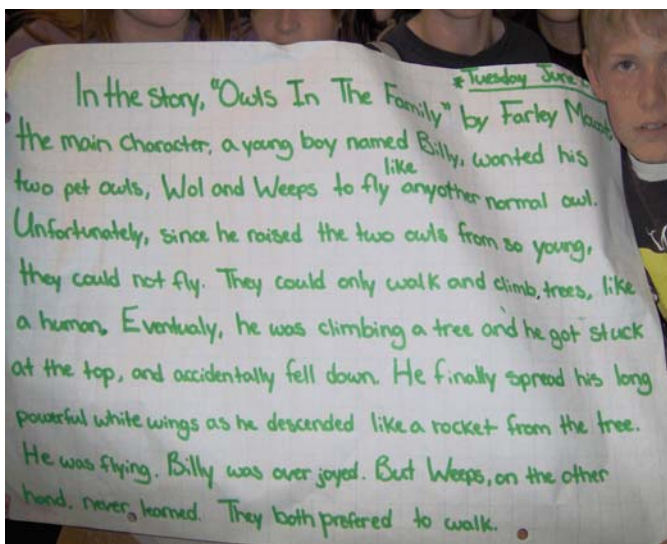 *Tuesday June
In the story, "Owls In The Family" by Farley
the main character, a young boy named Billy, wanted his
like
two pet owls, Wol and Weeps to fly anyother normal owl.
Unfortunately, since he raised the two owls from so young,
they could not fly. They could only walk and climb, trees, like
a human. Eventualy, he was climbing a tree and he got stuck
at the top, and accidentally fell down. He finally spread his long
powerful white wings as he descended like a rocket from the tree.
He was flying. Billy was over joyed. But Weeps, on the other
hand, never, learned. They both prefered to walk.